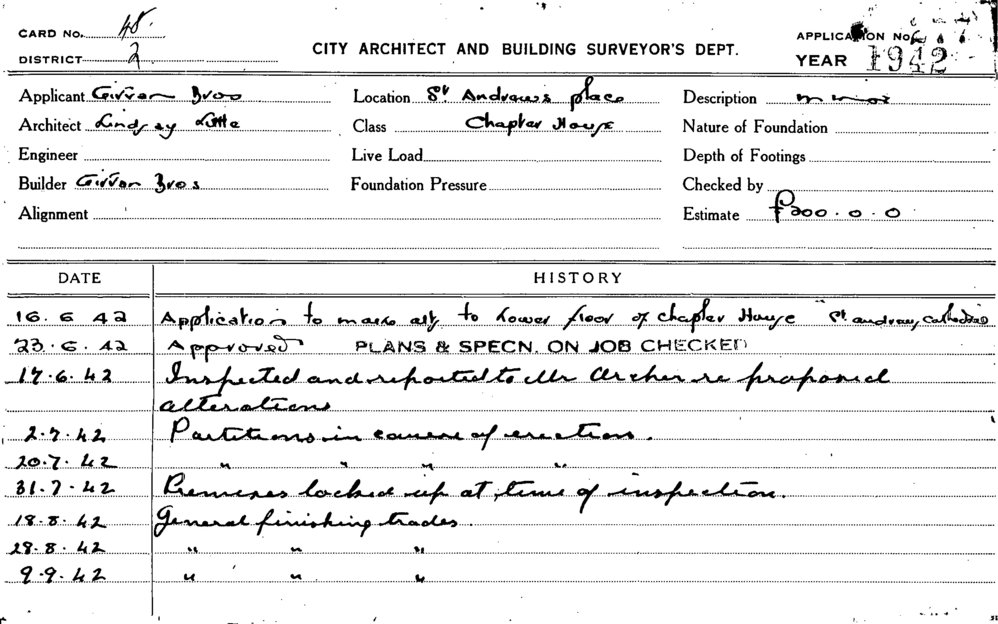 CARD No. 48.
DISTRICT 2
CITY ARCHITECT AND BUILDING SURVEYOR'S DEPT.
APPLICATION No.
YEAR 1942
Applicant Girvan Bros Location St Andrews place Description
Architect Lindsay Little Class Chapter House Nature of Foundation
Engineer Live Load Depth of Footings
Builder Girvan Bros Foundation Pressure Checked by
Alignment Estimate £200.0.0
DATE HISTORY
16.6 42 Application to make alts to Lower floor of chapter House St. andrews Cathedral
23.6.42 Approved PLANS & SPECN. ON JOB CHECKED
17.6.42 Inspected and reported to Mr Archer re proposed
alterations
2.7.42 Partitions in course of erection.
20.7.42 " " " "
31.7.42 Premises locked up at time of inspection.
18.8.42 General finishing trades.
28.8.42 " " "
9.9.42 " " "